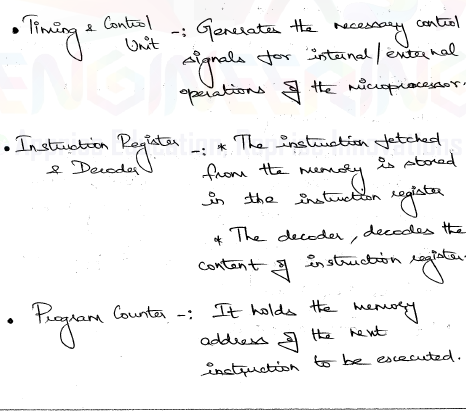 • Timing & Control Unit -: Generates the necessary control
signals for internal/external
operations of the microprocessor.
• Instruction Register & Decoder -: * The instruction fetched
from the memory is stored
in the instruction register
* The decoder, decodes the
content of instruction register.
• Program Counter -: It holds the memory
address of the next
instruction to be executed.